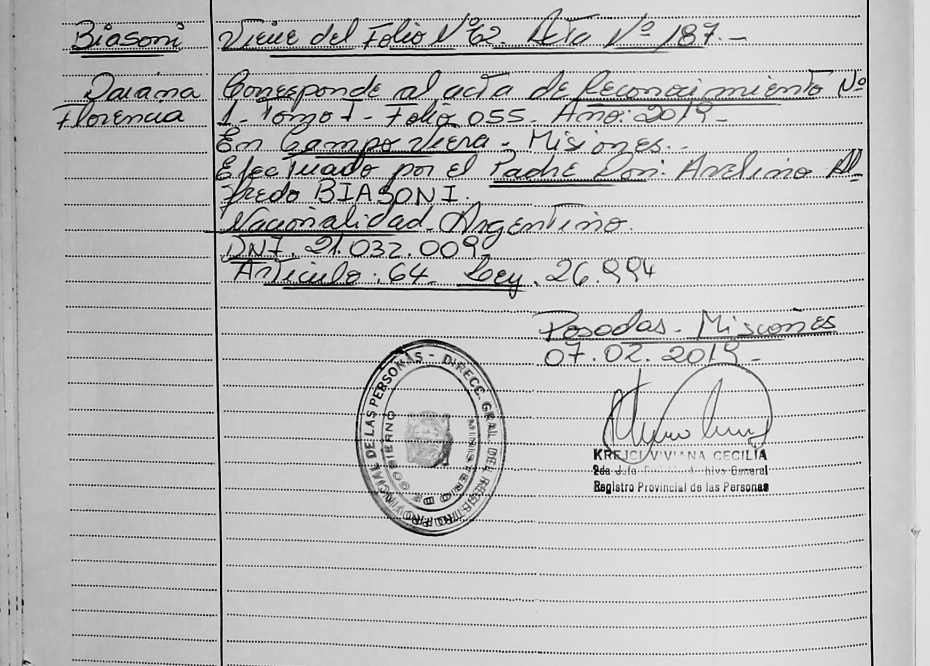 Biasoni
Daiana
Florencia
Viene del Folio Nº 62. Acta Nº 187.-
Corresponde al acta de Reconocimiento Nº
1.- Tomo I - Folio 055. Ano: 2019-
En Campo Viera - Misiones.-
Efectuado por el Padre Don: Avelino Al-
fredo BIASONI.
Nacionalidad - Argentino.
DNI. 21.032.009
Articulo: 64. Ley. 26.994
Posadas - Misiones
07.02.2019-
DIRECC. GRAL. DEL REGISTRO PROVINCIAL DE LAS PERSONAS -
MINISTERIO DE GOBIERNO
KREJCI VIVIANA CECILIA
2da Jefa General
Registro Provincial de las Personas